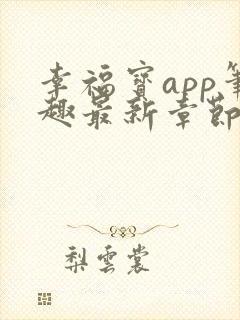 幸福寶app筆
趣最新章節
梨雲裳